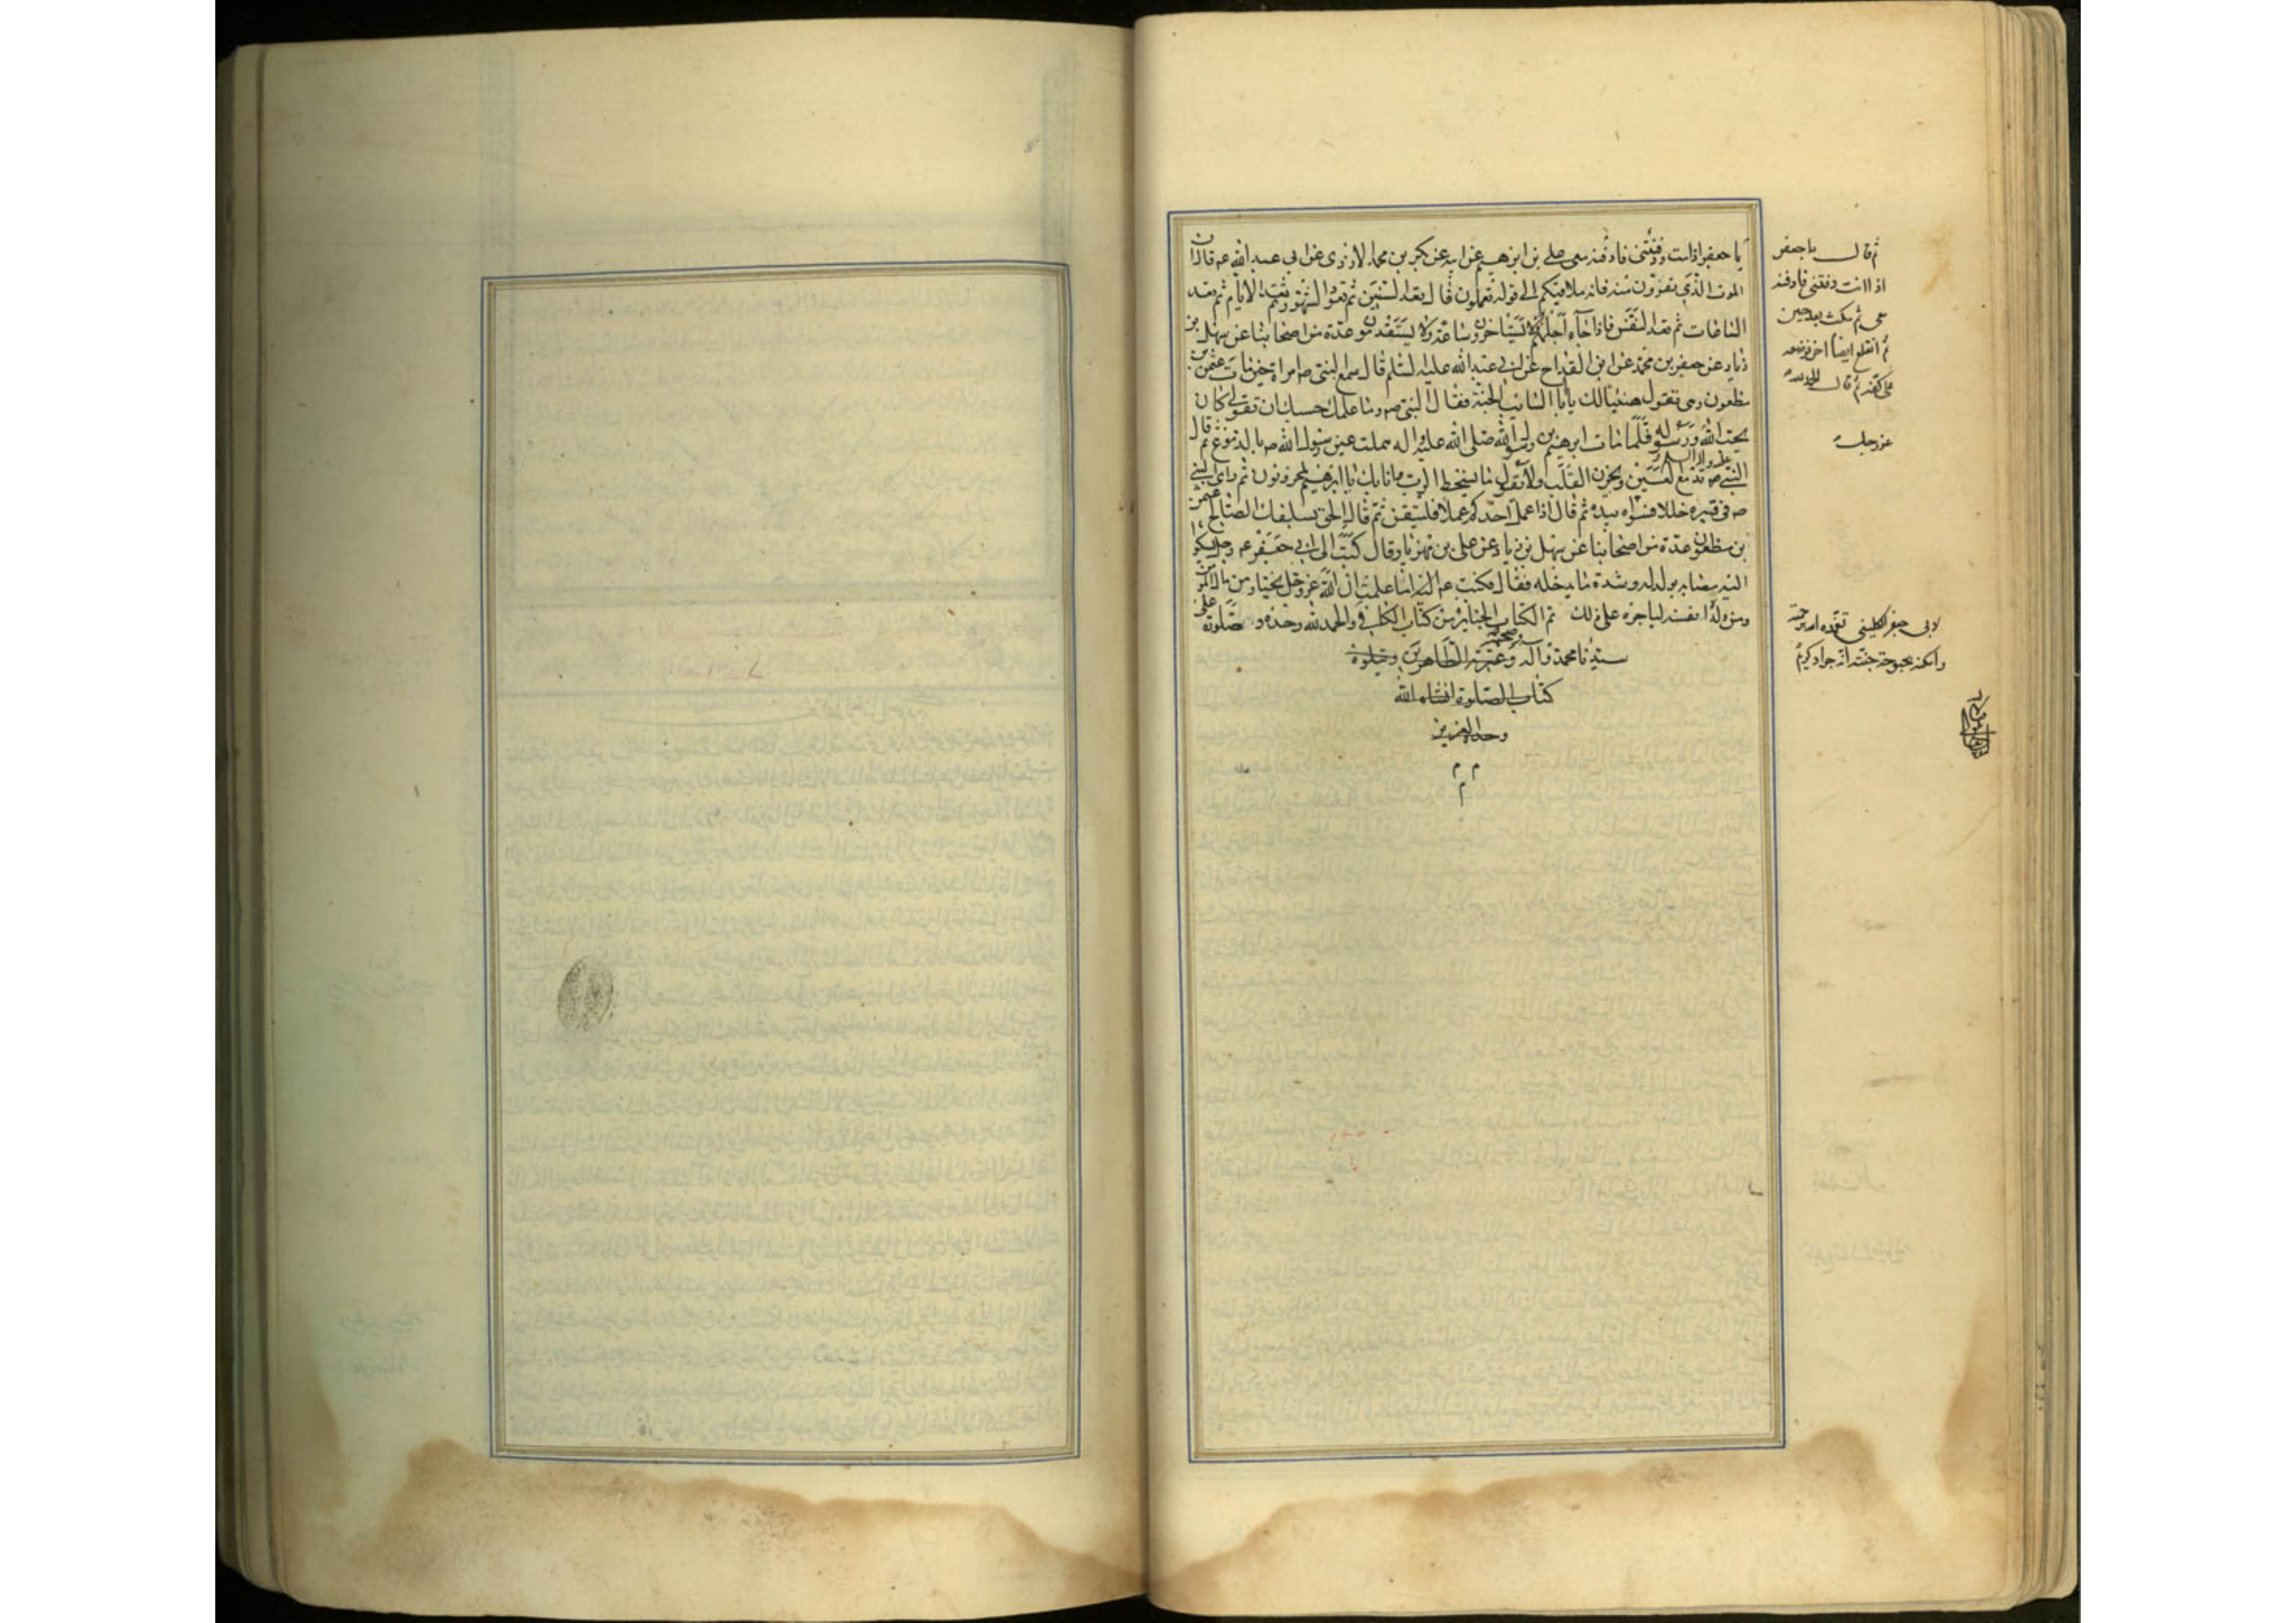 يا جعفر اذا مت ودفنتني فادفنه معي علي بن ابرهيم عن ابيه عن بكر بن محمد الازدي عن ابي عبد الله عم قال ان
الموت الذي تفرون منه فانه ملاقيكم الى قوله تعملون قال تعد السنين ثم تعد الشهور ثم تعد الايام ثم تعد
الساعات ثم تعد النفس فاذا جاء اجلهم لا يستاخرون ساعة ولا يستقدمون عدة من اصحابنا عن سهل بن
زياد عن جعفر بن محمد عن ابن القداح عن ابي عبد الله عليه السلم قال سمع النبي صم امراة حين مات عثمن بن
مظعون وهي تقول هنيئا لك يا ابا السائب الجنة فقال النبي صم وما علمك حسبك ان تقولي كان
يحب الله ورسوله فلما مات ابرهيم بن رسول الله صلى الله عليه واله هملت عين رسول الله صم بالدموع ثم قال
النبي صم تدمع العين ويحزن القلب ولا نقول ما يسخط الرب وانا بك يا ابرهيم لمحزونون ثم راى النبي
صم في قبره خللا فسواه بيده ثم قال اذا عمل احدكم عملا فليتقن ثم قال الحق بسلفك الصالح عثمن
بن مظعون عدة من اصحابنا عن سهل بن زياد عن علي بن مهزيار قال كتب الى ابي جعفر عم رجل يشكوا
اليه مصابه بولده وشدة ما يدخله فقال فكتب عم اليه اما علمت ان الله عز وجل يختار من مال المؤمن
ومن ولده انفسه لياجره على ذلك تم الكتاب الجنايز من كتاب الكافي والحمد لله وحده وصلوته على
سيدنا محمد واله وصحبه وعترته الطاهرين ويتلوه
كتاب الصلوة انشاء الله
وحده العزيز
م م
م
ثم قال يا جعفر
اذا انت دفنتني فادفنه
معي ثم مكث بعد حين
ثم انقلع ايضا اخر فوضعه
على كفه ثم قال الحمد لله
عز وجل
لابي جعفر الكليني تغمده الله برحمته
واسكنه بحبوحة جنته انه جواد كريم